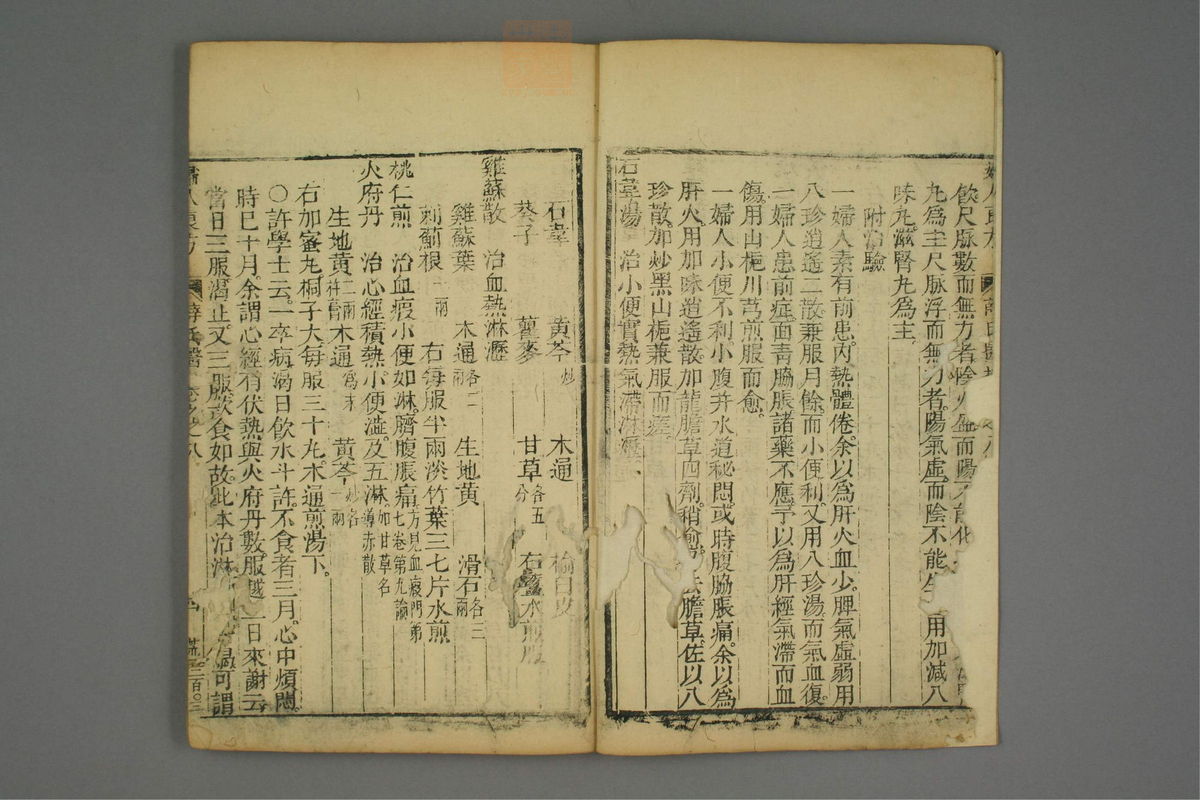 飲尺脉數而無力者陰火盛而陽不能化
九爲主尺脉浮而無力者陽氣虛而陰不能生用加減八
味九滋腎九爲主
附治驗
一婦人素有前患内熱體倦余以爲肝火血少脾氣虛弱用
八珍逍遙二散兼服月餘而小便利又用八珍湯而氣血復
一婦人患前症面青脇脹諸藥不應予以爲肝經氣滯而血
傷用山梔川芎煎服而愈
一婦人小便不利小腹并水道秘悶或時腹脇脹痛余以爲
肝火用加味逍遙散加龍膽草四劑稍愈膽草佐以八
珍散加炒黑山梔兼服而瘥
石葦湯 治小便實熱氣滯淋瀝
石葦 黃芩炒 木通 榆白皮
葵子 瞿麥 甘草各五分 右薑水煎服
雞蘇散 治血熱淋瀝
雞蘇葉 木通各二兩 生地黃 滑石各三兩
刺薊根一兩 右每服半兩淡竹葉三七片水煎
桃仁煎 治血瘕小便如淋臍腹脹痛方見血瘕門第七卷第九論
火府丹 治心經積熱小便澁及五淋加甘草名導赤散
生地黃二兩杵膏 木通爲末 黃芩炒各一兩
右加蜜九桐子大每服三十九木通煎湯下
○許學士云一卒病渴日飲水斗許不食者三月心中煩悶
時巳十月余謂心經有伏熱與火府丹數服越二日來謝云
當日三服渴止又三服飲食如故此本治淋渴可謂